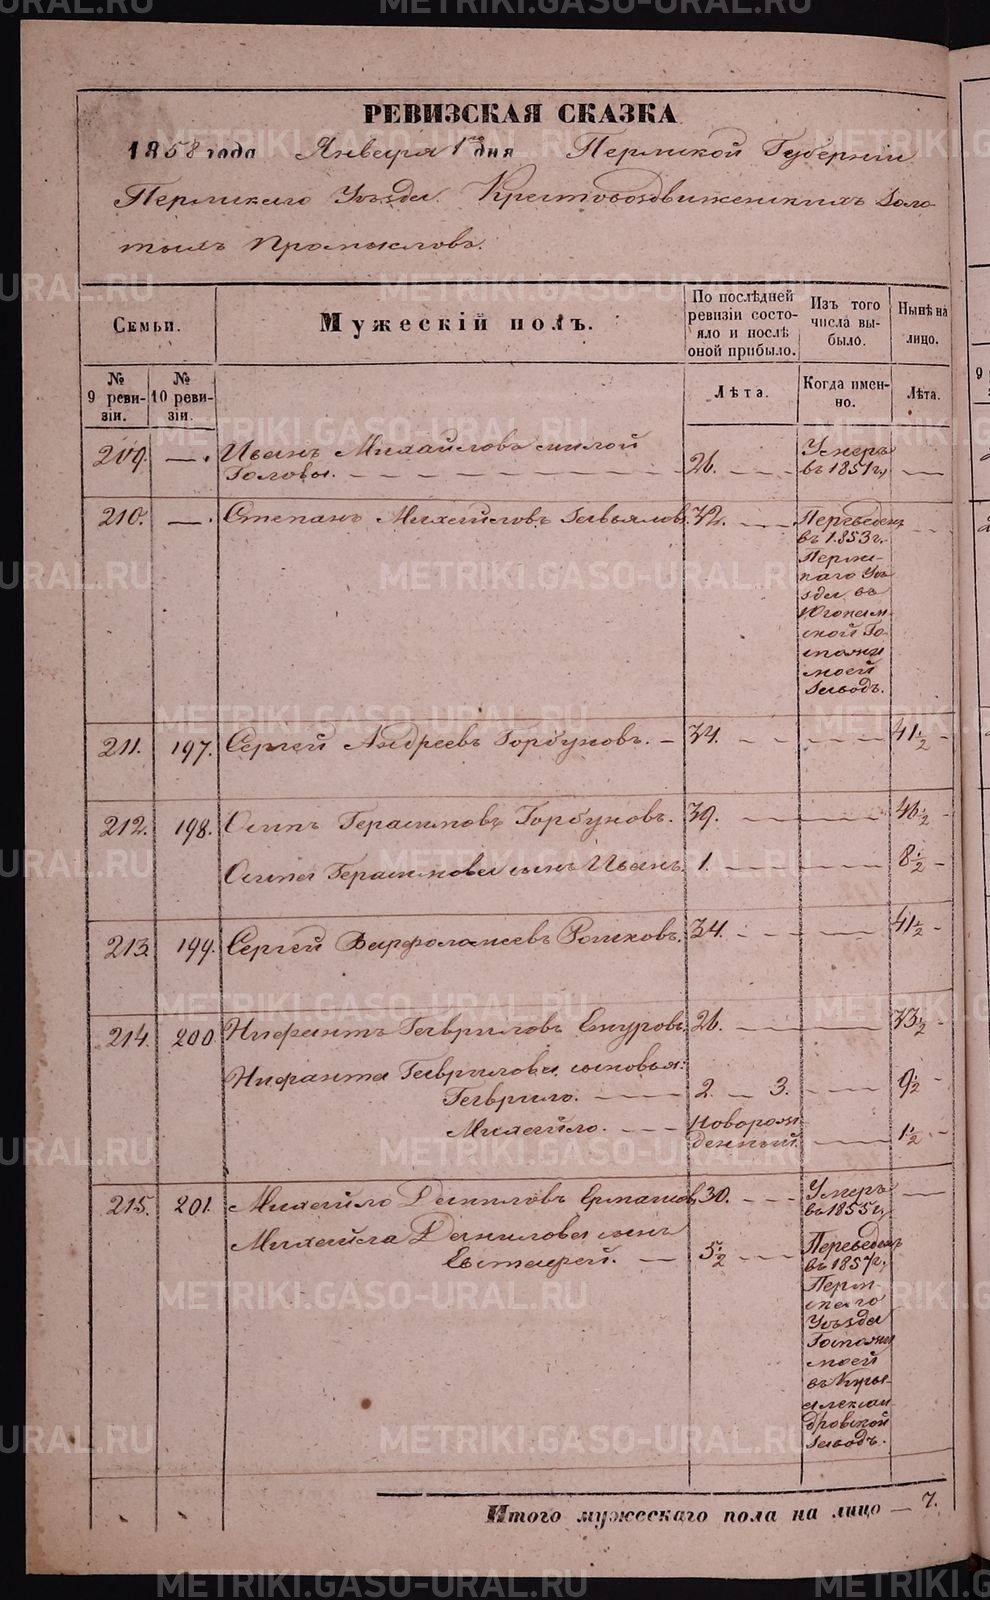 РЕВИЗСКАЯ СКАЗКА
1858 года Января 1го дня Пермской Губернiи
Пермскаго Уѣзда. Крестовоздвиженскихъ Золо-
тыхъ Промысловъ.
Семьи.
Мужескiй полъ.
По послѣдней ревизiи состо-
яло и послѣ
оной прибыло.
Изъ того числа вы-
было.
Нынѣ на
лицо.
№ 9 реви-
зiи.
№ 10 реви-
зiи.
Лѣта.
Когда имен-
но.
Лѣта.
209. — . Иванъ Михайловъ милой
Головы. — 26. — Умеръ
въ 1851 г, —
210. — . Степанъ Михайловъ Завьялов. 32. — Переведен
въ 1853 г.
Перм-
скаго Уѣ-
зда въ
Югокам-
ской Го-
спожи
моей
заводъ.
211. 197. Сергей Андреевъ Горбуновъ. — 34. — 41 1/2 -
212. 198. Осипъ Герасимовъ Горбуновъ. 39. — 46 1/2 -
Осипа Герасимова сынъ Иванъ. 1. — 8 1/2 -
213. 199. Сергей Варфоломеевъ 34. — 41 1/2 -
214. 200 Нифантъ Гавриловъ 26. — 33 1/2 -
Нифанта Гаврилова сыновья:
Гаврило. — 2. — 3. — 9 1/2 -
Михайло. — новорож
денный. — 1 1/2 -
215. 201. Михайло Даниловъ Ермаков, 30. — Умеръ
въ 1855 г, —
Михайла Данилова сынъ
Евстафей. — 5 1/2 — Переведенъ
въ 1857 г,
Перм-
скаго
Уѣзда
Госпожи
моей
въ Кусье-
алексан-
дровской
заводъ.
Итого мужескаго пола на лицо — 7.
METRIKI.GASO-URAL.RU